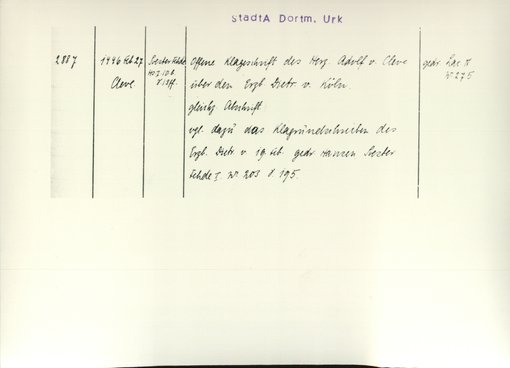 StadtA Dortm. Urk
2887
1446 Feb 27
Cleve
Soester Fehde
offene Klageschrift des Herz. Adolf v. Cleve
über den Erzb. Dietr. v. Köln.
gleichz. Abschrift
vgl. dazu das Klagrundschreiben des
Erzb. Dietr. v. 19 Feb. gedr. Hansen Soester
Fehde I, Nr. 203 S. 195.
gedr. Lac IV
Nr 275